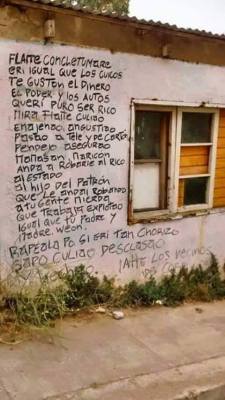 FLAITE CONCHETUMARE
ERI IGUAL QUE LOS CUICOS
TE GUSTAN EL DINERO
EL PODER Y LOS AUTOS
QUERÍ PURO SER RICO
MIRA FLAITE CULIAO
ENAJENAO, ANGUSTIAO
PASTAO A TELE Y DE CARTÓN
PENDEJO ASEGURAO
MATASAN, MARICON
ANDA A ROBARLE AL RICO
AL ESTADO
AL HIJO DEL PATRÓN
QUE LE ANDAI ROBANDO
A TU GENTE MIERDA
QUE TRABAJA EXPLOTAO
IGUAL QUE TU PADRE Y
MADRE, WEON.
RAPEALA PO SI ERI TAN CHORIZO
SAPO CULIAO DESCLASAO
LOS VECINOS